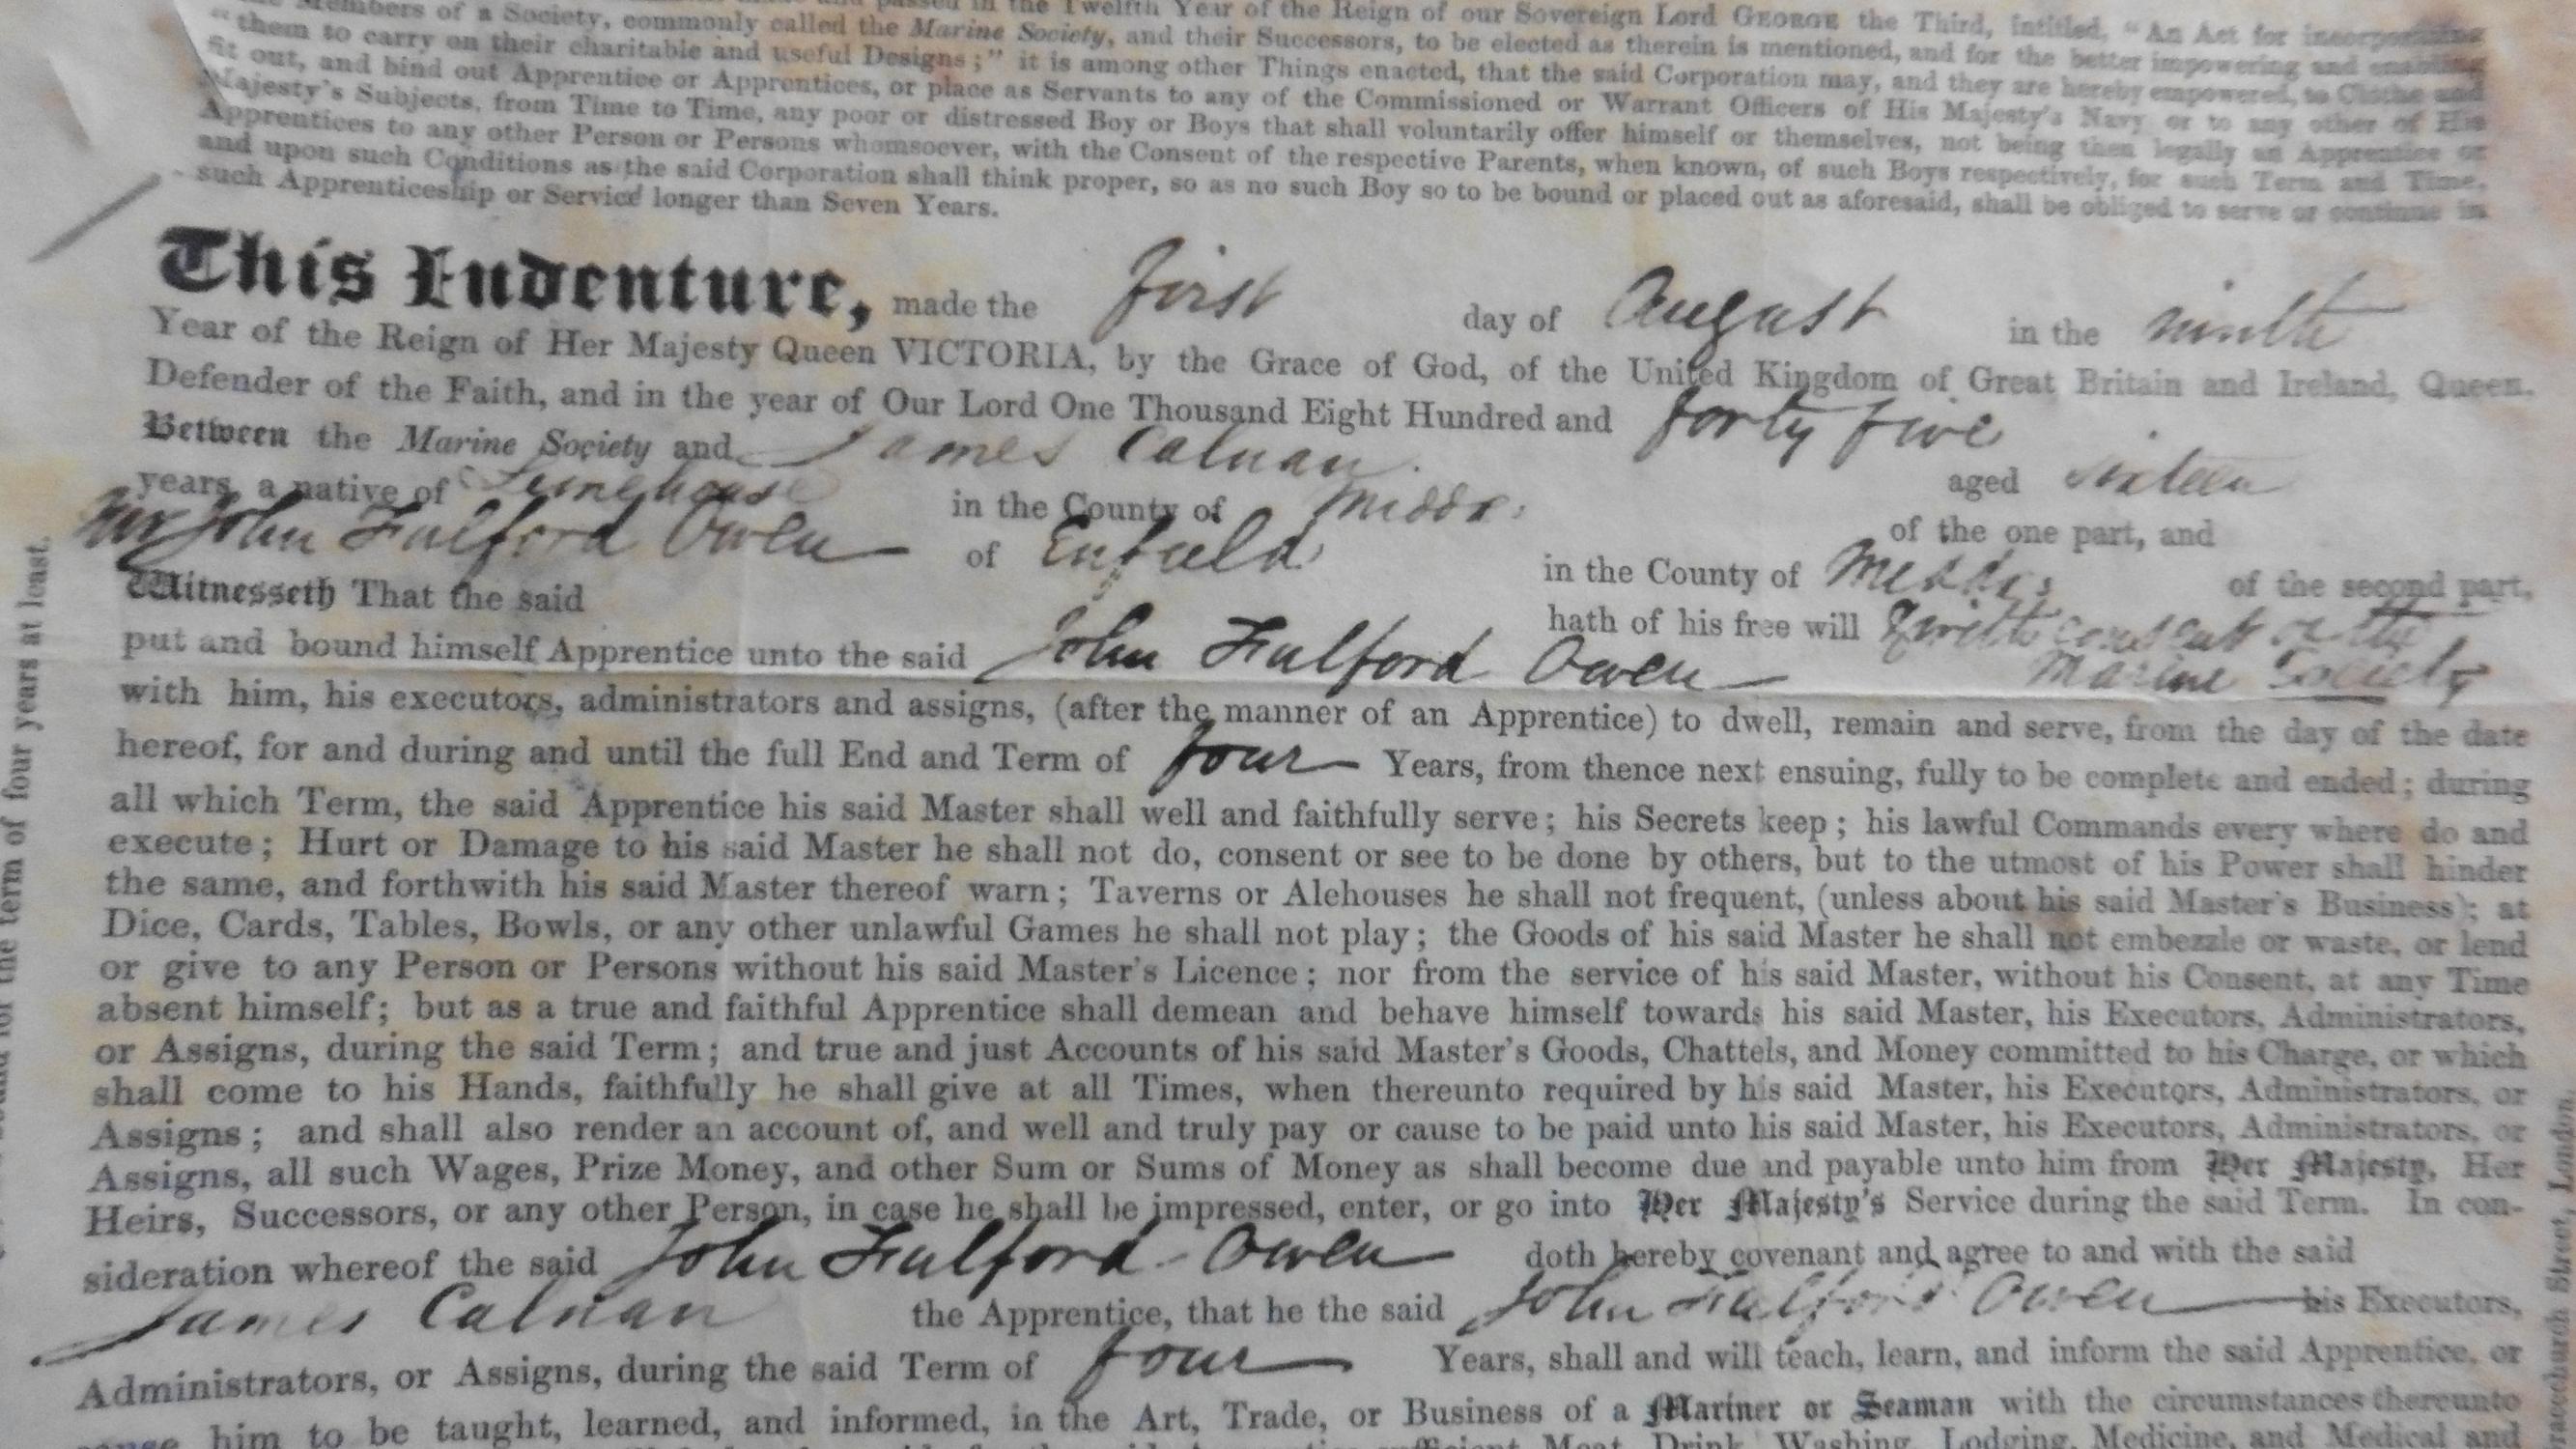 Members of a Society, commonly called the Marine Society, and their Successors, to be elected as therein is mentioned, and for the better impowering and enabling
passed in the Twelfth Year of the Reign of our Sovereign Lord GEORGE the Third, intitled, "An Act for incorporating
"them to carry on their charitable and useful Designs;" it is among other Things enacted, that the said Corporation may, and they are hereby empowered, to Clothe and
fit out, and bind out Apprentice or Apprentices, or place as Servants to any of the Commissioned or Warrant Officers of His Majesty's Navy or to any other of His
Majesty's Subjects, from Time to Time, any poor or distressed Boy or Boys that shall voluntarily offer himself or themselves, not being then legally an Apprentice or
Apprentices to any other Person or Persons whomsoever, with the Consent of the respective Parents, when known, of such Boys respectively, for such Term and Time,
and upon such Conditions as the said Corporation shall think proper, so as no such Boy so to be bound or placed out as aforesaid, shall be obliged to serve or continue in
such Apprenticeship or Service longer than Seven Years.
This Indenture, made the first day of August in the ninth
Year of the Reign of Her Majesty Queen VICTORIA, by the Grace of God, of the United Kingdom of Great Britain and Ireland, Queen.
Defender of the Faith, and in the year of Our Lord One Thousand Eight Hundred and forty five
Between the Marine Society and James Calnan aged sixteen
years, a native of Limehouse in the County of Middx. of the one part, and
Mr John Fulford Owen of Enfield in the County of Middx. of the second part,
Witnesseth That the said hath of his free will & with consent of the Marine Society
put and bound himself Apprentice unto the said John Fulford Owen
with him, his executors, administrators and assigns, (after the manner of an Apprentice) to dwell, remain and serve, from the day of the date
hereof, for and during and until the full End and Term of four Years, from thence next ensuing, fully to be complete and ended; during
all which Term, the said Apprentice his said Master shall well and faithfully serve; his Secrets keep; his lawful Commands every where do and
execute; Hurt or Damage to his said Master he shall not do, consent or see to be done by others, but to the utmost of his Power shall hinder
the same, and forthwith his said Master thereof warn; Taverns or Alehouses he shall not frequent, (unless about his said Master's Business); at
Dice, Cards, Tables, Bowls, or any other unlawful Games he shall not play; the Goods of his said Master he shall not embezzle or waste, or lend
or give to any Person or Persons without his said Master's Licence; nor from the service of his said Master, without his Consent, at any Time
absent himself; but as a true and faithful Apprentice shall demean and behave himself towards his said Master, his Executors, Administrators,
or Assigns, during the said Term; and true and just Accounts of his said Master's Goods, Chattels, and Money committed to his Charge, or which
shall come to his Hands, faithfully he shall give at all Times, when thereunto required by his said Master, his Executors, Administrators, or
Assigns; and shall also render an account of, and well and truly pay or cause to be paid unto his said Master, his Executors, Administrators, or
Assigns, all such Wages, Prize Money, and other Sum or Sums of Money as shall become due and payable unto him from Her Majesty, Her
Heirs, Successors, or any other Person, in case he shall be impressed, enter, or go into Her Majesty's Service during the said Term. In con-
sideration whereof the said John Fulford Owen doth hereby covenant and agree to and with the said
James Calnan the Apprentice, that he the said John Fulford Owen his Executors,
Administrators, or Assigns, during the said Term of four Years, shall and will teach, learn, and inform the said Apprentice, or
cause him to be taught, learned, and informed, in the Art, Trade, or Business of a Mariner or Seaman with the circumstances thereunto
Meat, Drink, Washing, Lodging, Medicine, and Medical and
for the term of four years at least.
Gracechurch Street, London.